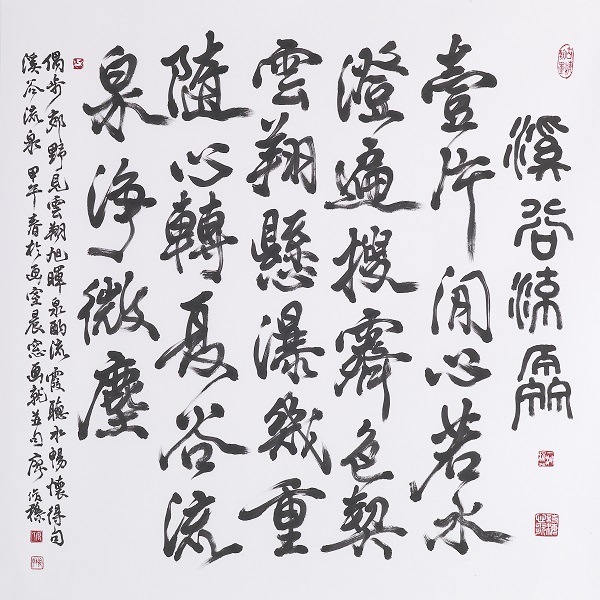 溪谷流泉
壹片閒心若水
澄遍搜霽色契
雲翔懸瀑幾重
隨心轉夏谷流
泉淨微塵
偶步郊野見雲翔旭暉泉酌流霞聽水暢懷得句
溪谷流泉 甲午春於画室晨窓画就並句 廖俊穆